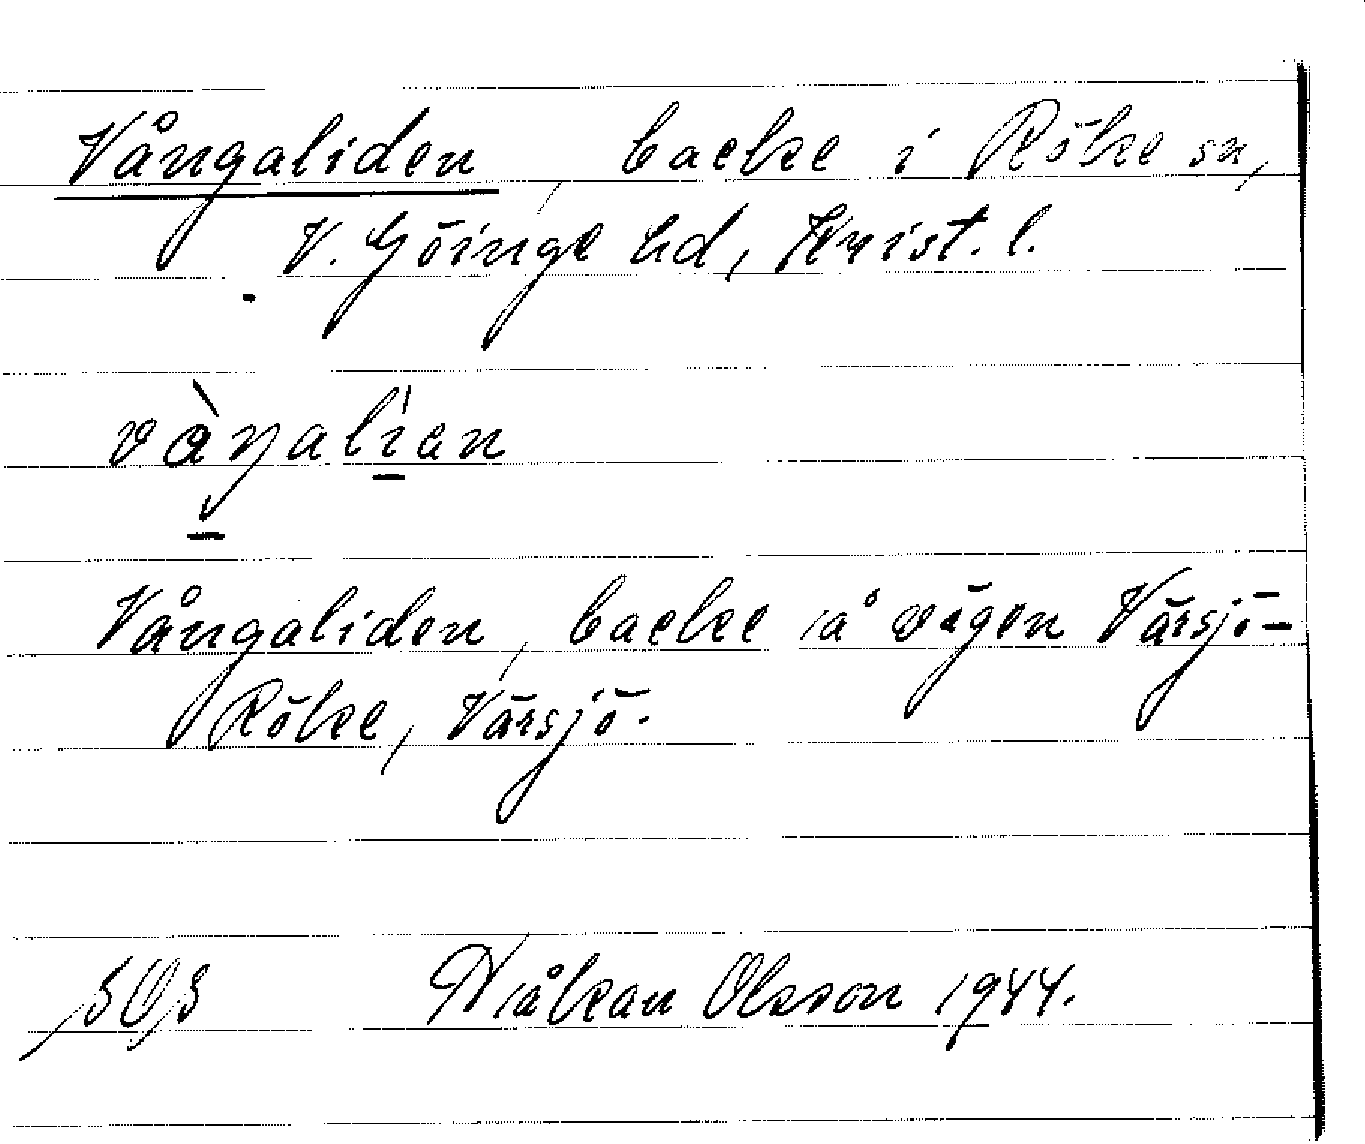 Vångaliden, backe i Röke sn,
V. Göinge hd, Krist. l.
vàŋalían
Vångaliden, backe på vägen Värsjö-
Röke, Värsjö.
Håkan Olsson 1944.